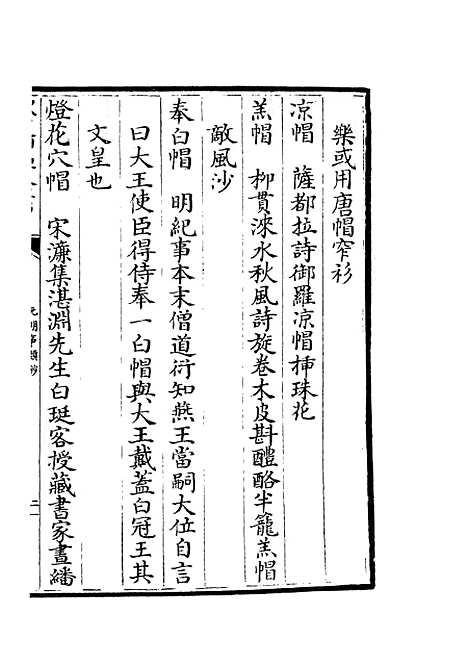 樂或用唐帽窄衫
凉帽　薩都拉詩御羅凉帽揷珠花
羔帽　柳貫淶水秋風詩旋卷木皮斟醴酪半籠羔帽
敵風沙
奉白帽　明紀事本末僧道衍知燕王當嗣大位自言
曰大王使臣得侍奉一白帽與大王戴蓋白冠王其
文皇也
燈花穴帽　宋濂集湛淵先生白珽客授藏書家晝繙
元明事類鈔
二一